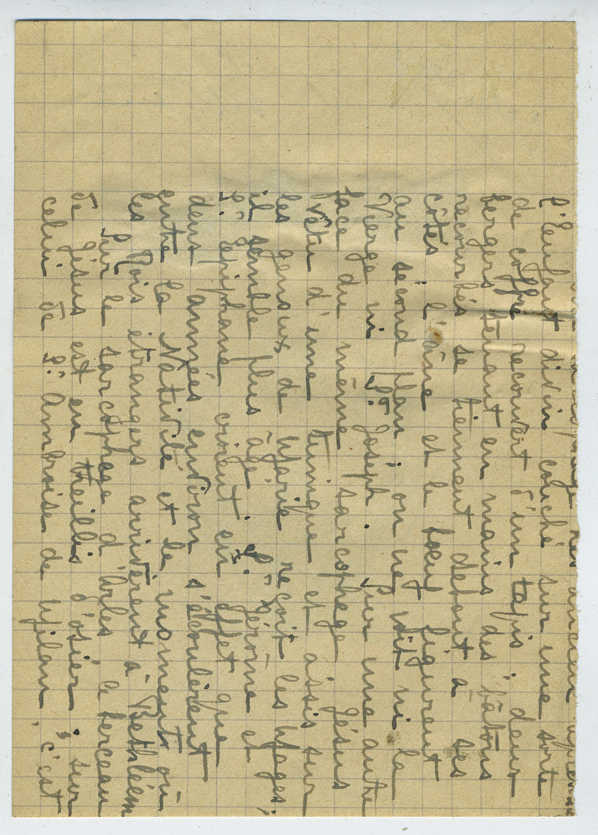 très ancien
l'enfant divin couché sur une sorte
de coffre recouvert d'un tapis ; deux
bergers tenant en mains des bâtons
recourbés se tiennent debout à ses
côtés ; l'âne et le bœuf figurent
au second plan ; on ne voit ni la
Vierge ni St. Joseph. Sur une autre
face du même sarcophage Jésus
vêtu d'une tunique et assis sur
les genoux de Marie reçoit les Mages ;
il semble plus âgé. St. Jérôme et
St. Epiphane croient en effet que
deux années environ s'écoulèrent
entre la Nativité et le moment où
les Rois étrangers arrivèrent à Bethléem
Sur le sarcophage d'Arles le berceau
de Jésus est en treillis d'osier ; sur
celui de St. Ambroise de Milan, c'est